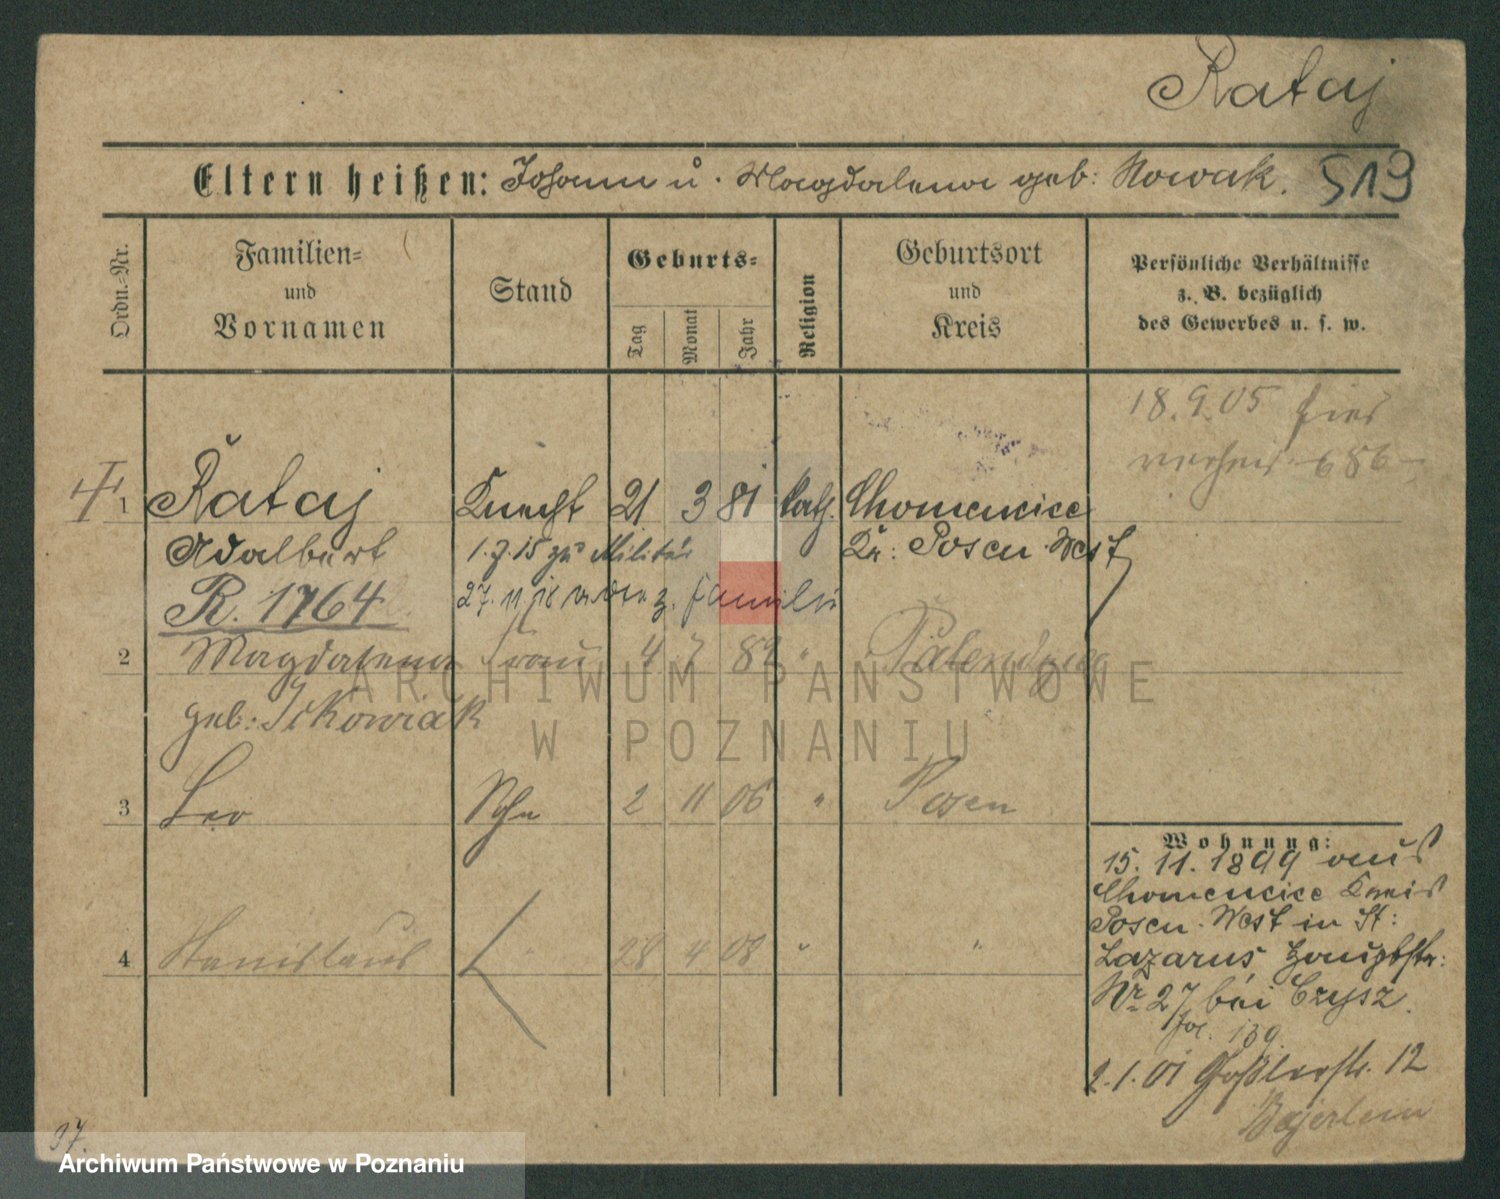 Rataj
Eltern heißen: Johann u. Magdalena geb: Nowak. 519
Ordn.-Nr.
Familien-
und
Vornamen
Stand
Geburts-
Tag
Monat
Jahr
Religion
Geburtsort
und
Kreis
Persönliche Verhältnisse
z. B. bezüglich
des Gewerbes u. s. w.
18.9.05 hier
verheir. 686
1 Rataj Knecht 21 3 81 kath. Chomencice
Adalbert 1.7.15 zu Militär Kr: Posen West
R. 1764 27.11.18 z. Familie
2 Magdalena Frau 4 7 82 "
geb:
3 Leo Sohn 2 11 06 " Posen
4 Stanislaus " 28 4 08 " "
Wohnung:
15.11.1899 aus
Chomencice Kreis
Posen-West in St:
Lazarus Hauptstr:
Nr 27 bei Czysz.
139.
2.1.01 Goßlerstr. 12
Bajerlein
37.
ARCHIWUM PAŃSTWOWE
W POZNANIU
Archiwum Państwowe w Poznaniu